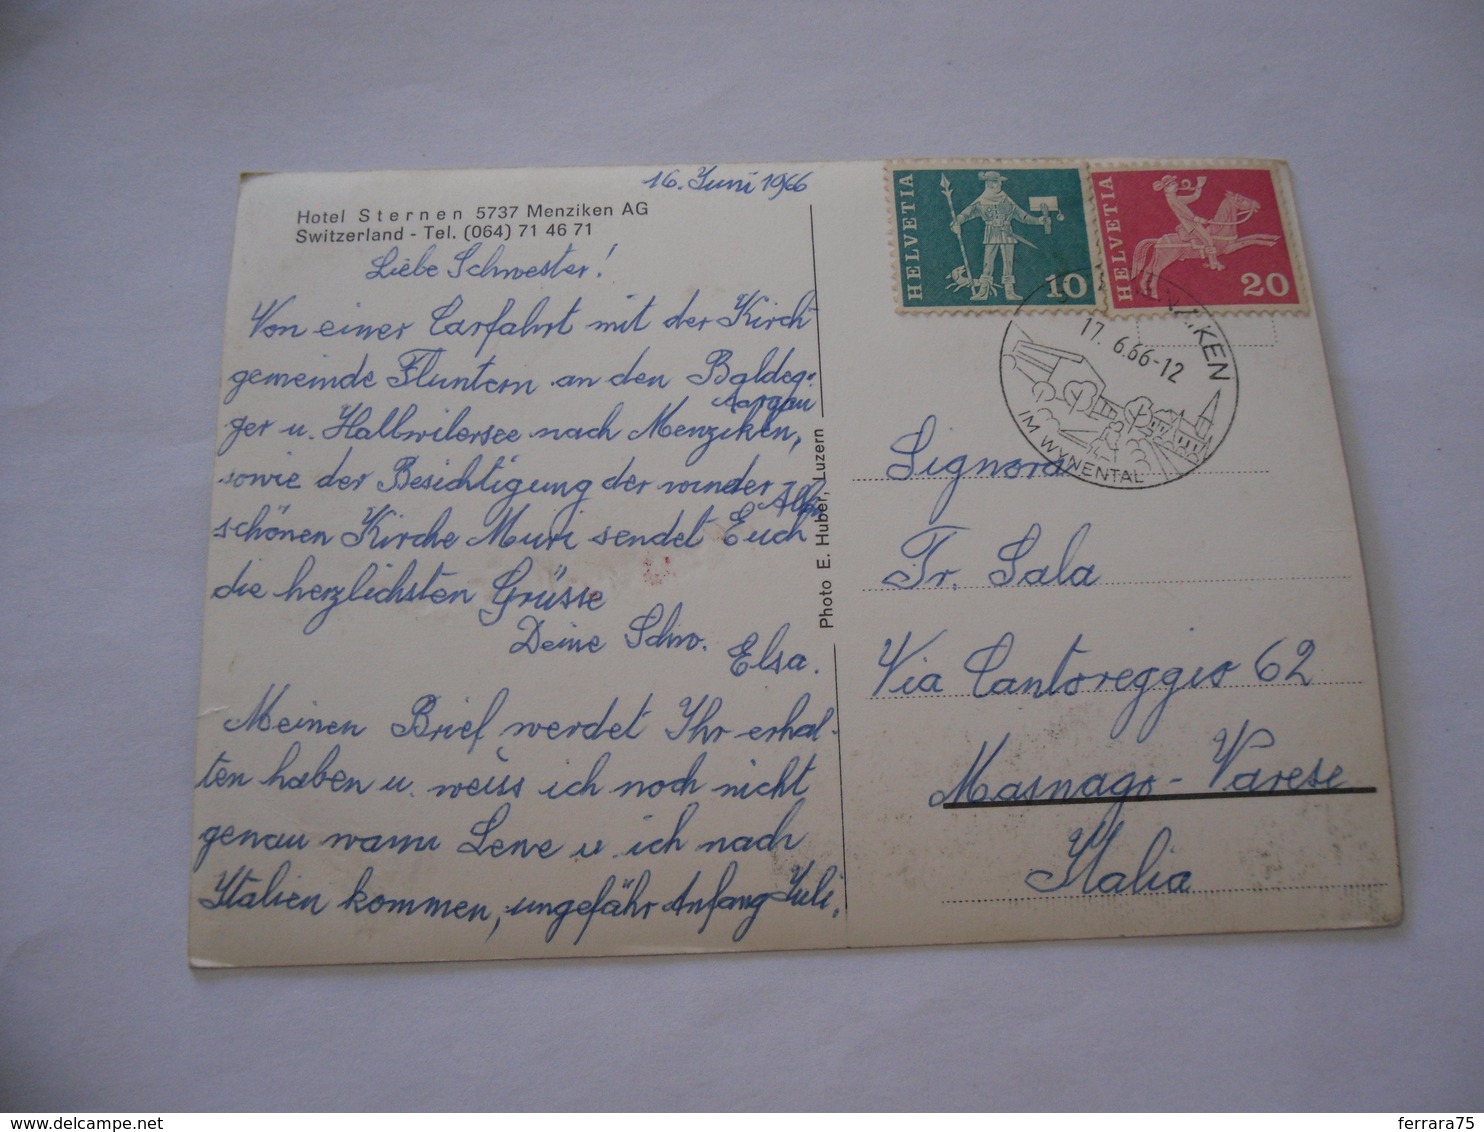 16. Juni 1966
Hotel Sternen 5737 Menziken AG
Switzerland - Tel. (064) 71 46 71
Liebe Schwester!
Von einer Carfahrt mit der Kirch
gemeinde Fluntern an den Baldeg-
Aargau
ger u. Hallwilersee nach Menziken,
sowie der Besichtigung der wunder
schönen Kirche Muri sendet Euch
die herzlichsten Grüsse
Deine Schw.
Elsa.
Meinen Brief werdet Ihr erhal-
ten haben u. weiss ich noch nicht
genau wann Lene u. ich nach
Italien kommen, ungefähr Anfang Juli.
Photo E. Huber, Luzern
HELVETIA
10
HELVETIA
20
MENZIKEN
17. 6.66-12
IM WYNENTAL
Signora
Fr. Sala
Via Cantoreggio 62
Masnago - Varese
Italia
ferrara75